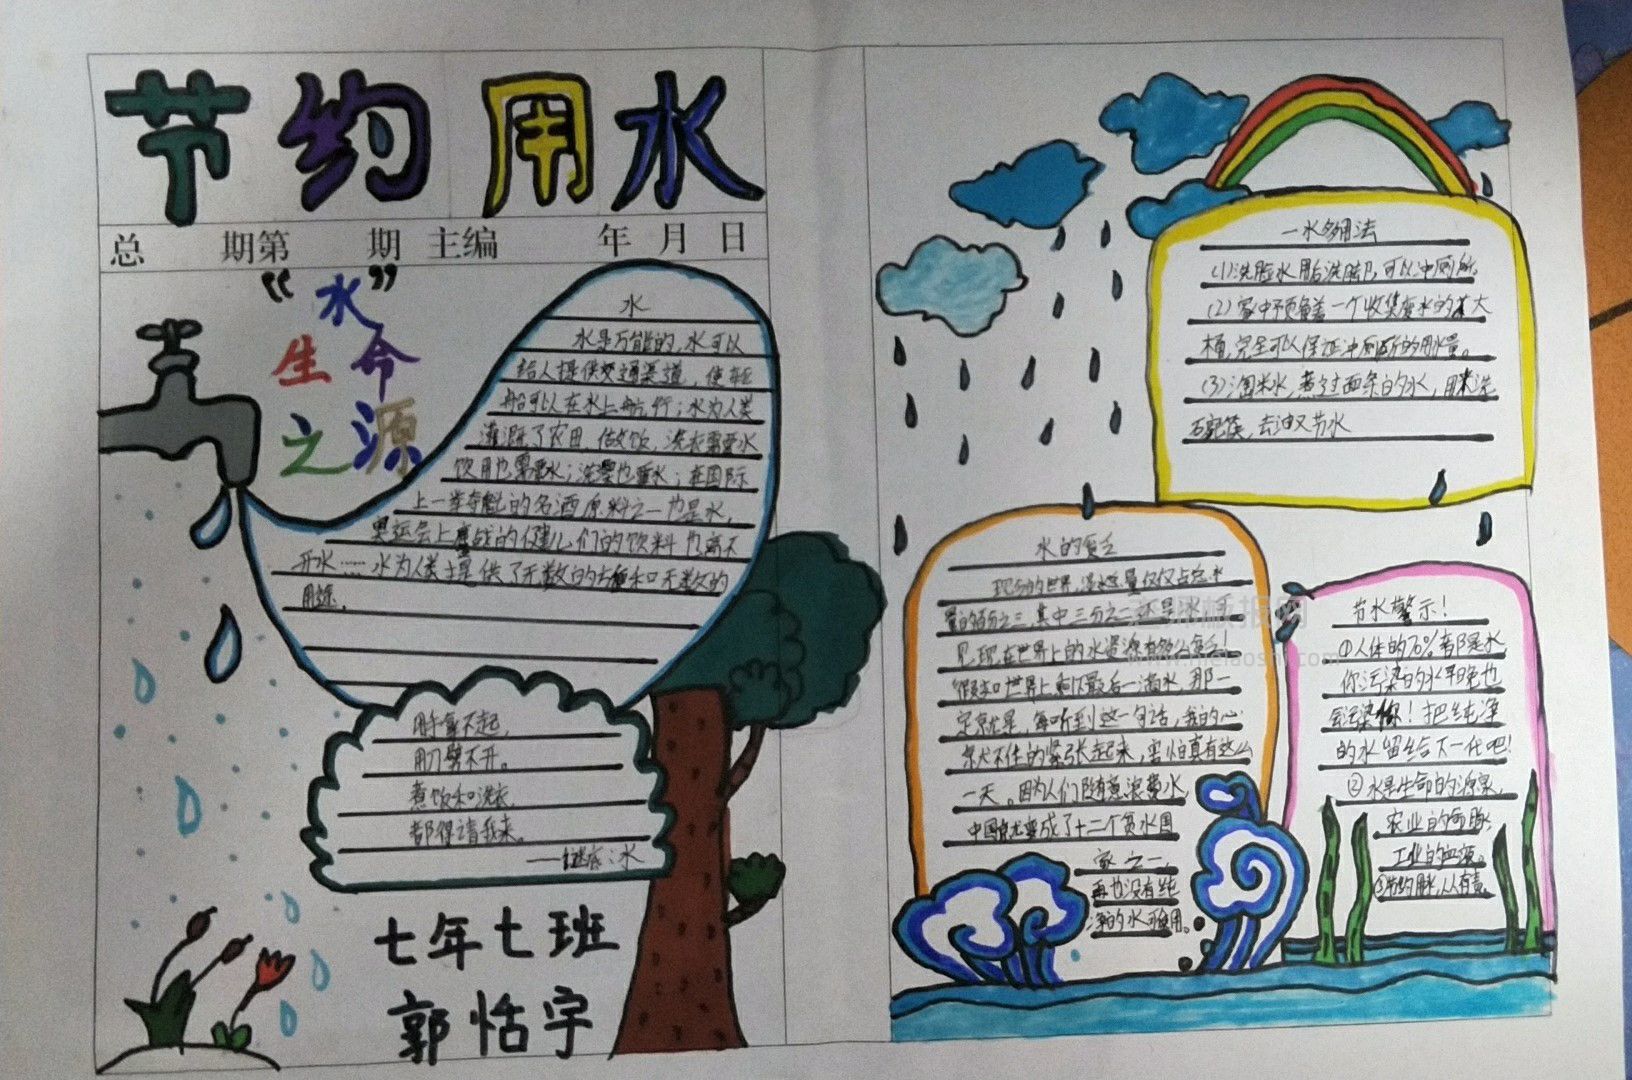 节约用水
总 期第 期 主编 年 月 日
“水”
生命
之源
水
水是万能的,水可以
给人提供交通渠道,使轻
船可以在水上航行;水为人类
灌溉了农田,做饭,洗衣需要水
饮用也需要水;洗澡也要水;在国际
上一举夺魁的名酒原料之一也是水,
奥运会上鏖战的健儿们的饮料也离不
开水……水为人类提供了无数的方便和无数的
用途.
用手拿不起,
用刀劈不开。
煮饭和洗衣,
都得请我来。
——谜底:水
七年七班
郭恬宇
一水多用法
(1)洗脸水用后洗脚,可以冲厕所。
(2)家中预备一个收集废水的大
桶,完全可以保证冲厕所的用水量。
(3)淘米水,煮过面条的水,用来洗
碗筷,去油又节水
水的复乏
现今的世界,淡水总量仅仅占总水
量的百分之三,其中三分之二还是冰,可
见,现在世界上的水资源有多么复乏!
假如世界上剩下最后一滴水,那一
定就是,每听到这一句话,我的心
就止不住的紧张起来,害怕真有这么
一天。因为人们随意浪费水,
中国就变成了十二个贫水国
家之一,
再也没有纯
净的水可使用。
节水警示!
①人体的70%都是水
你污染的水早晚也
会污染你!把纯净
的水留给下一代吧!
②水是生命的源泉,
农业的命脉,
工业的血液。
③节约用水,人人有责。